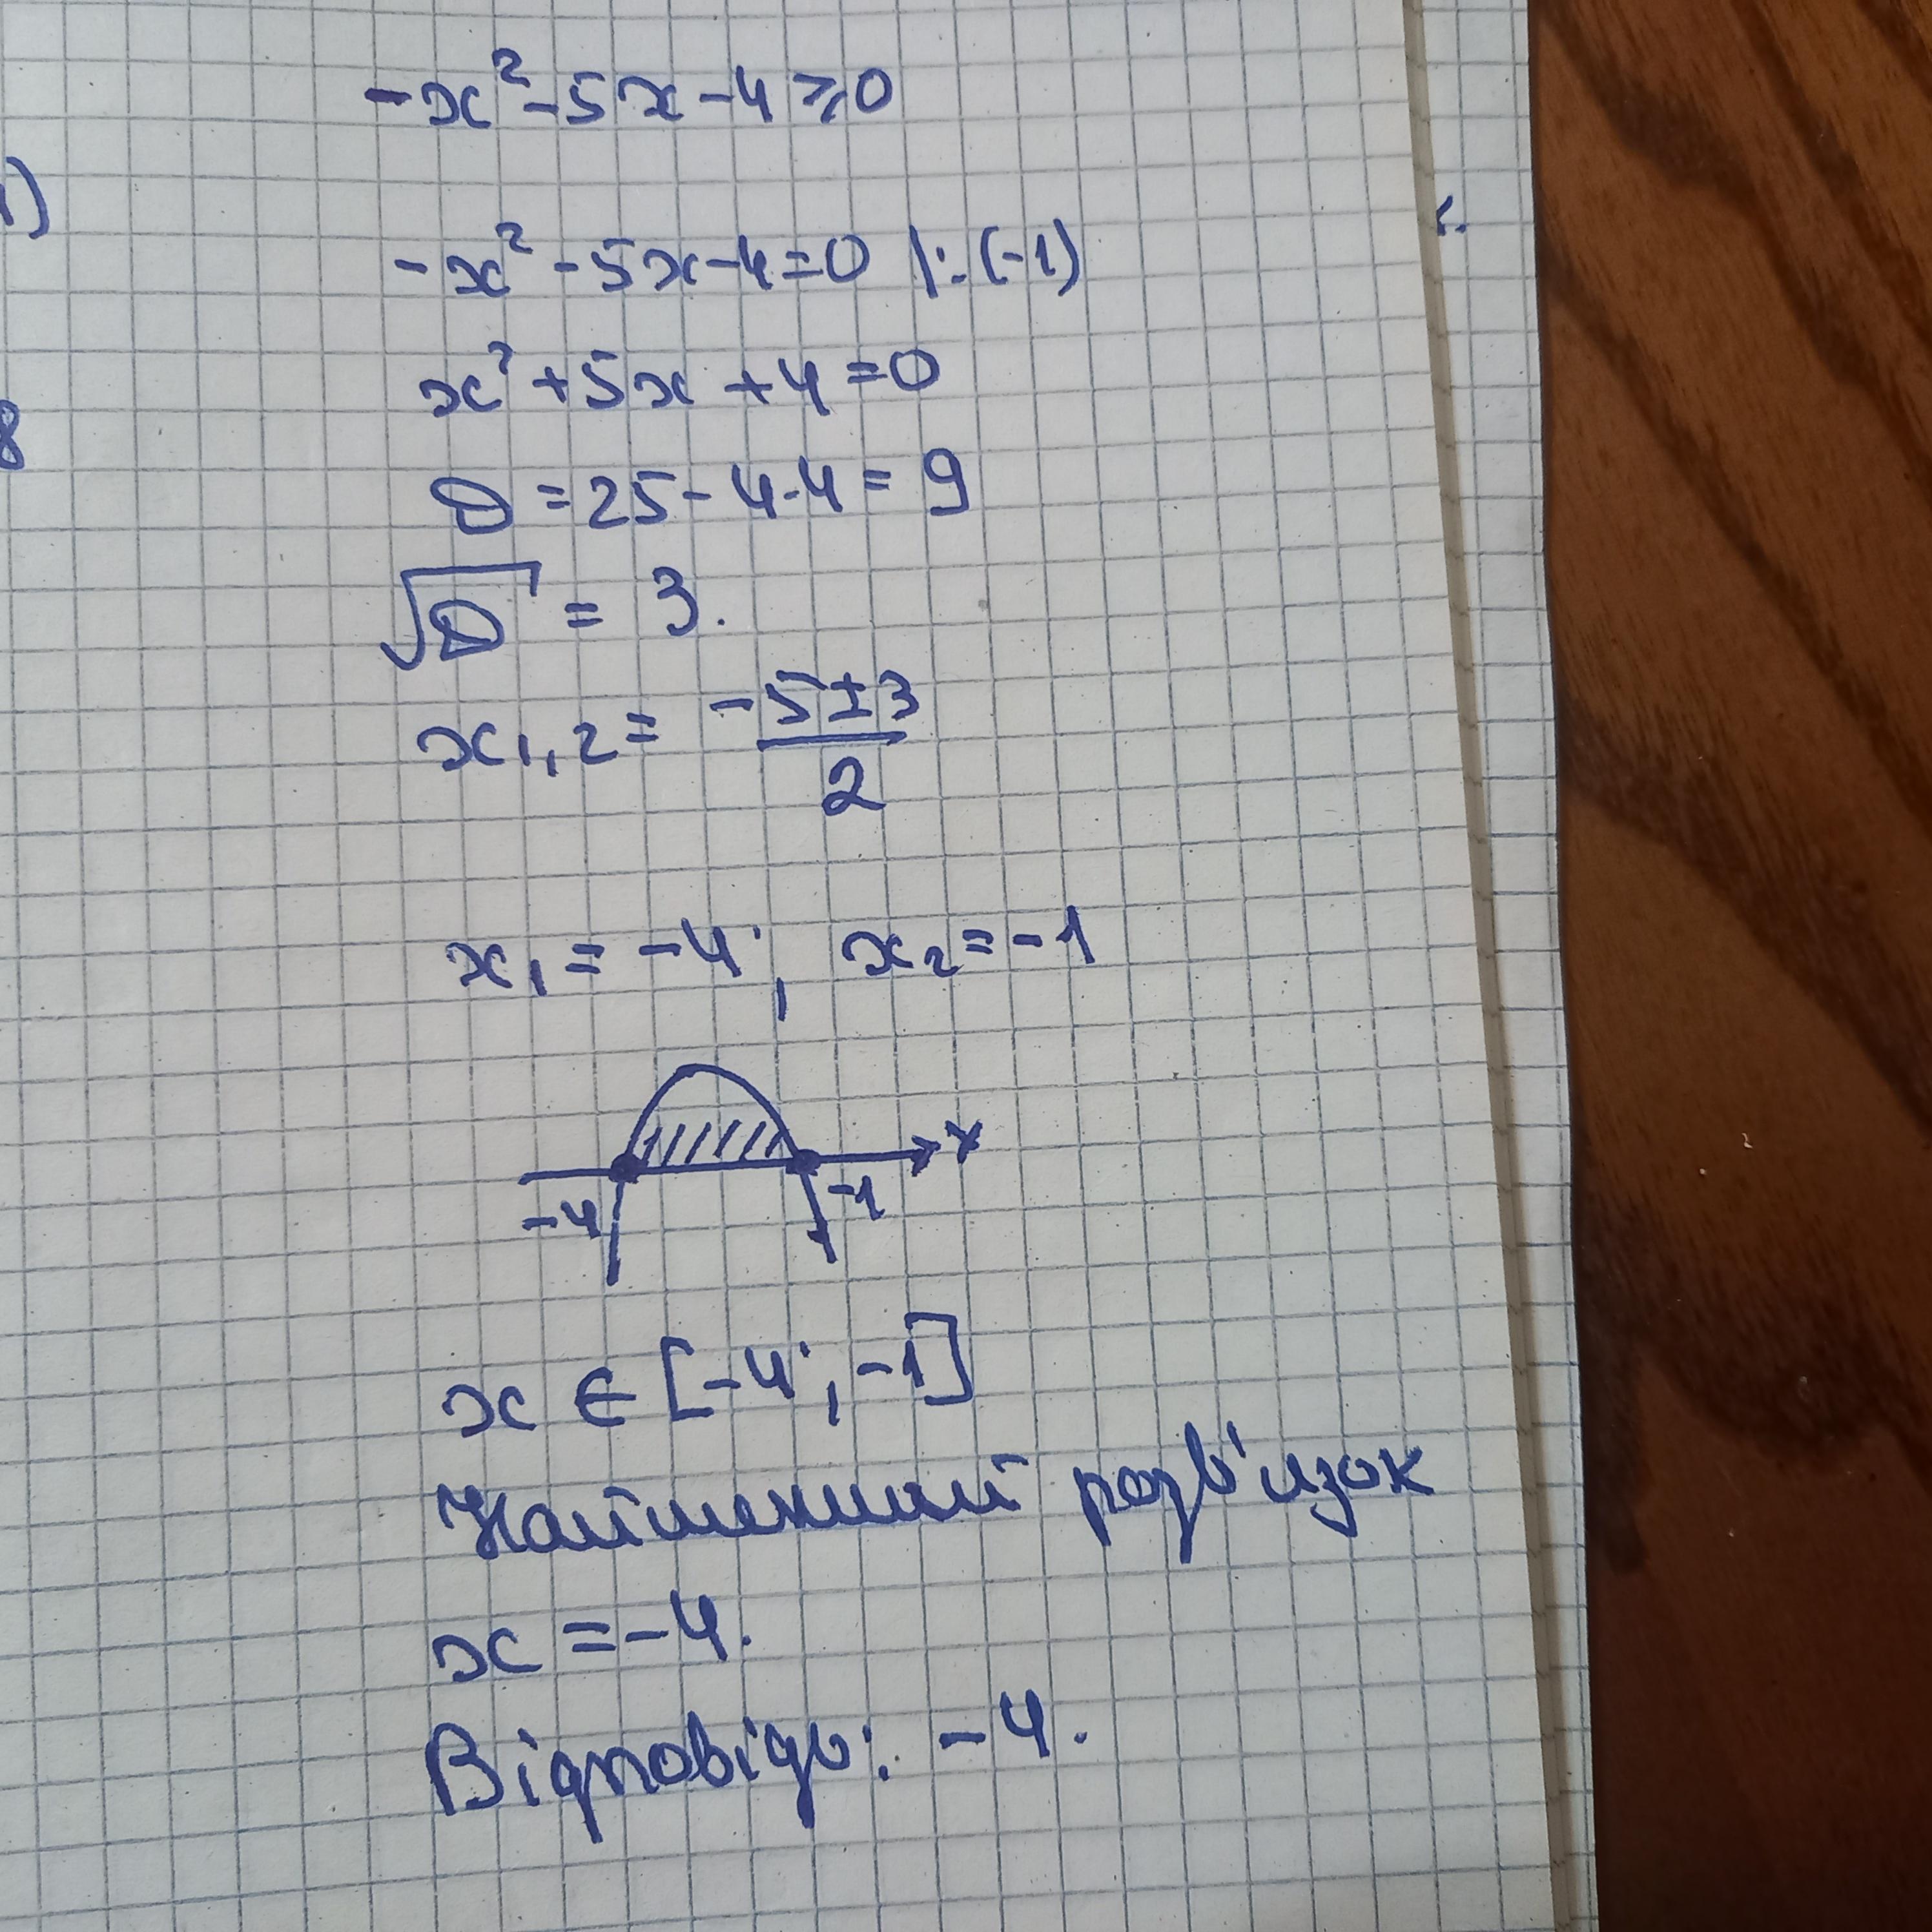 -x² - 5x - 4 ≥ 0
1)
-x² - 5x - 4 = 0 |:(-1)
x² + 5x + 4 = 0
8
D = 25 - 4·4 = 9
√D = 3.
x₁,₂ = (-5±3)/2
x₁ = -4; x₂ = -1
x
-4 -1
x ∈ [-4; -1]
Найменший розв'язок
x = -4.
Відповідь: -4.